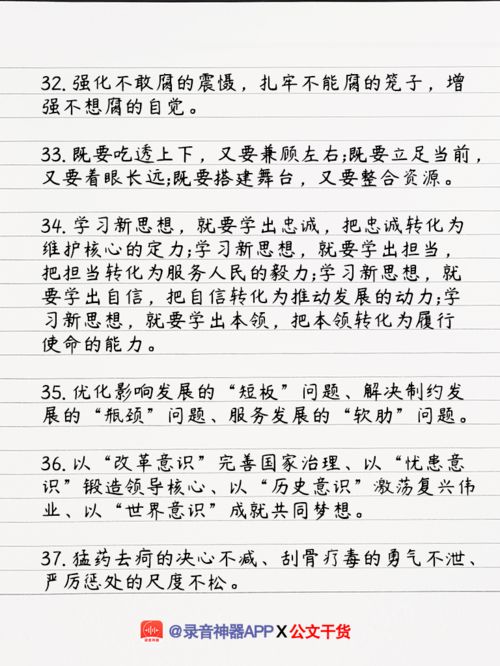 32. 强化不敢腐的震慑，扎牢不能腐的笼子，增
强不想腐的自觉。
33. 既要吃透上下，又要兼顾左右;既要立足当前，
又要着眼长远;既要搭建舞台，又要整合资源。
34. 学习新思想，就要学出忠诚，把忠诚转化为
维护核心的定力;学习新思想，就要学出担当，
把担当转化为服务人民的毅力;学习新思想，就
要学出自信，把自信转化为推动发展的动力;学
习新思想，就要学出本领，把本领转化为履行
使命的能力。
35. 优化影响发展的“短板”问题、解决制约发
展的“瓶颈”问题、服务发展的“软肋”问题。
36. 以“改革意识”完善国家治理、以“忧患意
识”锻造领导核心、以“历史意识”激荡复兴伟
业、以“世界意识”成就共同梦想。
37. 猛药去疴的决心不减、刮骨疗毒的勇气不泄、
严厉惩处的尺度不松。
@录音神器APP X 公文干货